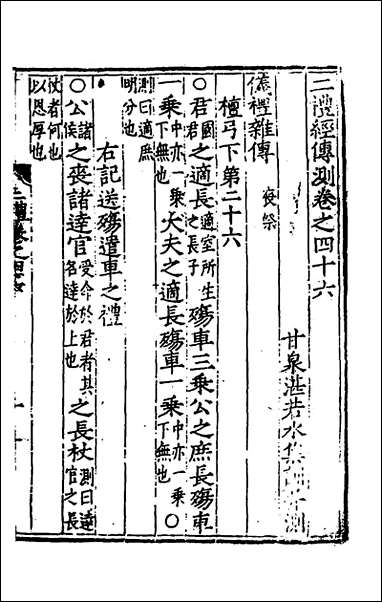 二禮經傳測卷之四十六
甘泉湛若水集訓并測
儀禮雜傳 喪祭
檀弓下第二十六
○君國君之適長適室所生之長子殤車三乗公之庶長殤車
一乗中亦一乗下無也大夫之適長殤車一乗中亦一乗下無也○
測曰適庶明分也
右記送殤遣車之禮
○公諸侯之喪諸逹官受命於君者其名達於上也之長杖測曰逹官之長
杖者何也以恩厚也